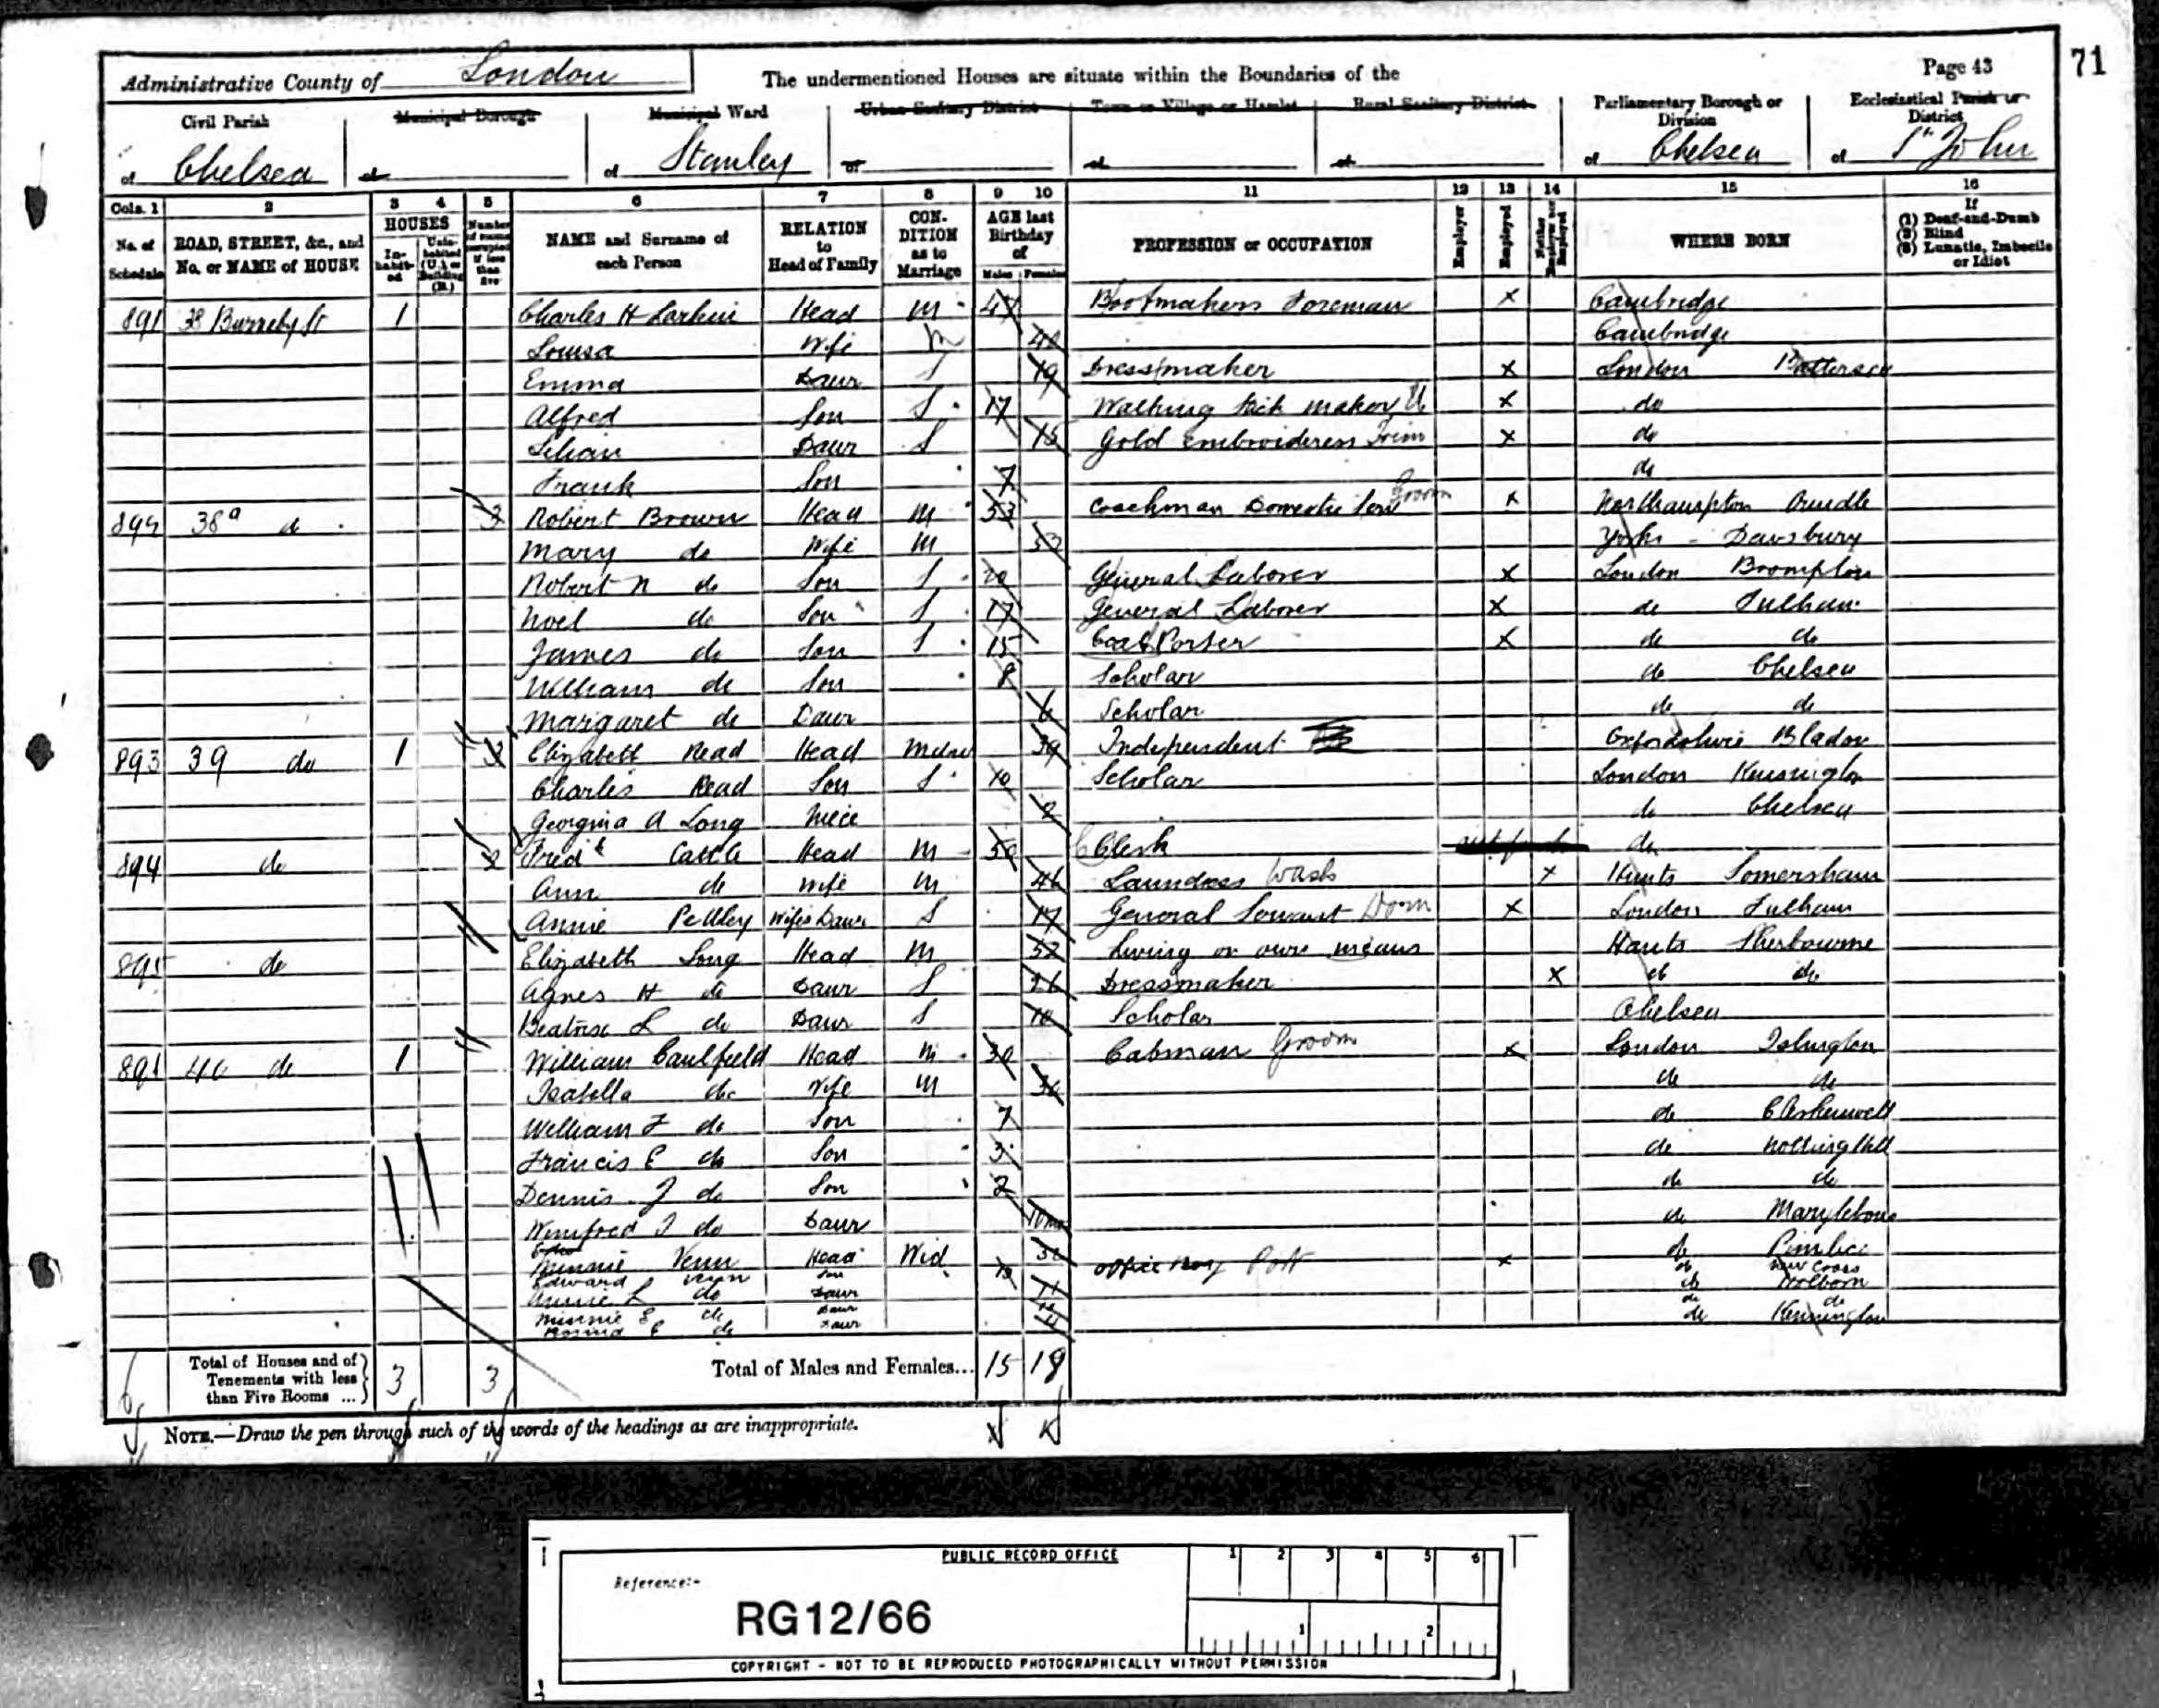 Administrative County of London
The undermentioned Houses are situate within the Boundaries of the
Page 43
71
Civil Parish
of Chelsea
Municipal Borough
of
Municipal Ward
of Stanley
Urban Sanitary District
of
Town or Village or Hamlet
of
Rural Sanitary District
of
Parliamentary Borough or Division
of Chelsea
Ecclesiastical Parish or District
of St John
Cols. 1 2 3 4 5 6 7 8 9 10 11 12 13 14 15 16
No. of Schedule
ROAD, STREET, &c., and No. or NAME of HOUSE
HOUSES
In-habit-ed
Unin-habited (U.) or Building (B.)
Number of rooms occupied if less than five
NAME and Surname of each Person
RELATION to Head of Family
CON-DITION as to Marriage
AGE last Birthday of
Males Females
PROFESSION or OCCUPATION
Employer
Employed
Neither Employer nor Employed
WHERE BORN
If (1) Deaf-and-Dumb (2) Blind (3) Lunatic, Imbecile or Idiot
891 38 Burnaby St 1 Charles H Larkin Head M Bootmakers Foreman X Cambridge
Louisa Wife M Cambridge
Emma Daur S 19 Dressmaker X London Battersea
Alfred Son S 17 Walking Stick maker X do
Lilian Daur S 15 Gold Embroideress Trim X do
Frank Son 7 do
892 38a do 3 Robert Brown Head M 53 Coachman Domestic Serv Groom X Northampton Oundle
Mary do Wife M Yorks - Dewsbury
Robert N do Son S 20 General Laborer X London Brompton
Noel do Son S 17 General Laborer X do Fulham
James do Son S 15 Coal Porter X do do
William do Son 8 Scholar do Chelsea
Margaret do Daur 6 Scholar do do
893 39 do 1 3 Elizabeth Read Head 39 Independent Oxfordshire Bladon
Charles Read Son S 10 Scholar London Kensington
Georgina A Long Niece 2 do Chelsea
894 do 2 Fredk Head M 50 Clerk do
Ann do Wife M 46 Laundress Wash X Hunts Somersham
Annie Wifes Daur S 17 General Servant Dom X London Fulham
895 do Elizabeth Long Head M 52 Living on own means Hants Sherbourne
Agnes H do Daur S 26 Dressmaker X do do
Beatrise L do Daur S 10 Scholar Chelsea
891 40 do 1 William Caulfield Head M 30 Cabman Groom X London Islington
Isabella do Wife M 30 do do
William F do Son 7 do Clerkenwell
Francis E do Son 3 do Notting Hill
Dennis J do Son 2 do do
Winifred J do Daur 10 mo do Marylebone
Minnie Venn Head Wid do Pimlico
Edward Venn Son Office boy Post X do New Cross
Annie L do Daur 11 do Holborn
Minnie E do Daur do do
do Daur do Kennington
Total of Houses and of Tenements with less than Five Rooms ... 3 3
Total of Males and Females... 15 19
NOTE.—Draw the pen through such of the words of the headings as are inappropriate.
PUBLIC RECORD OFFICE
1 2 3 4 5 6
Reference:-
RG12/66
1 2
COPYRIGHT - NOT TO BE REPRODUCED PHOTOGRAPHICALLY WITHOUT PERMISSION